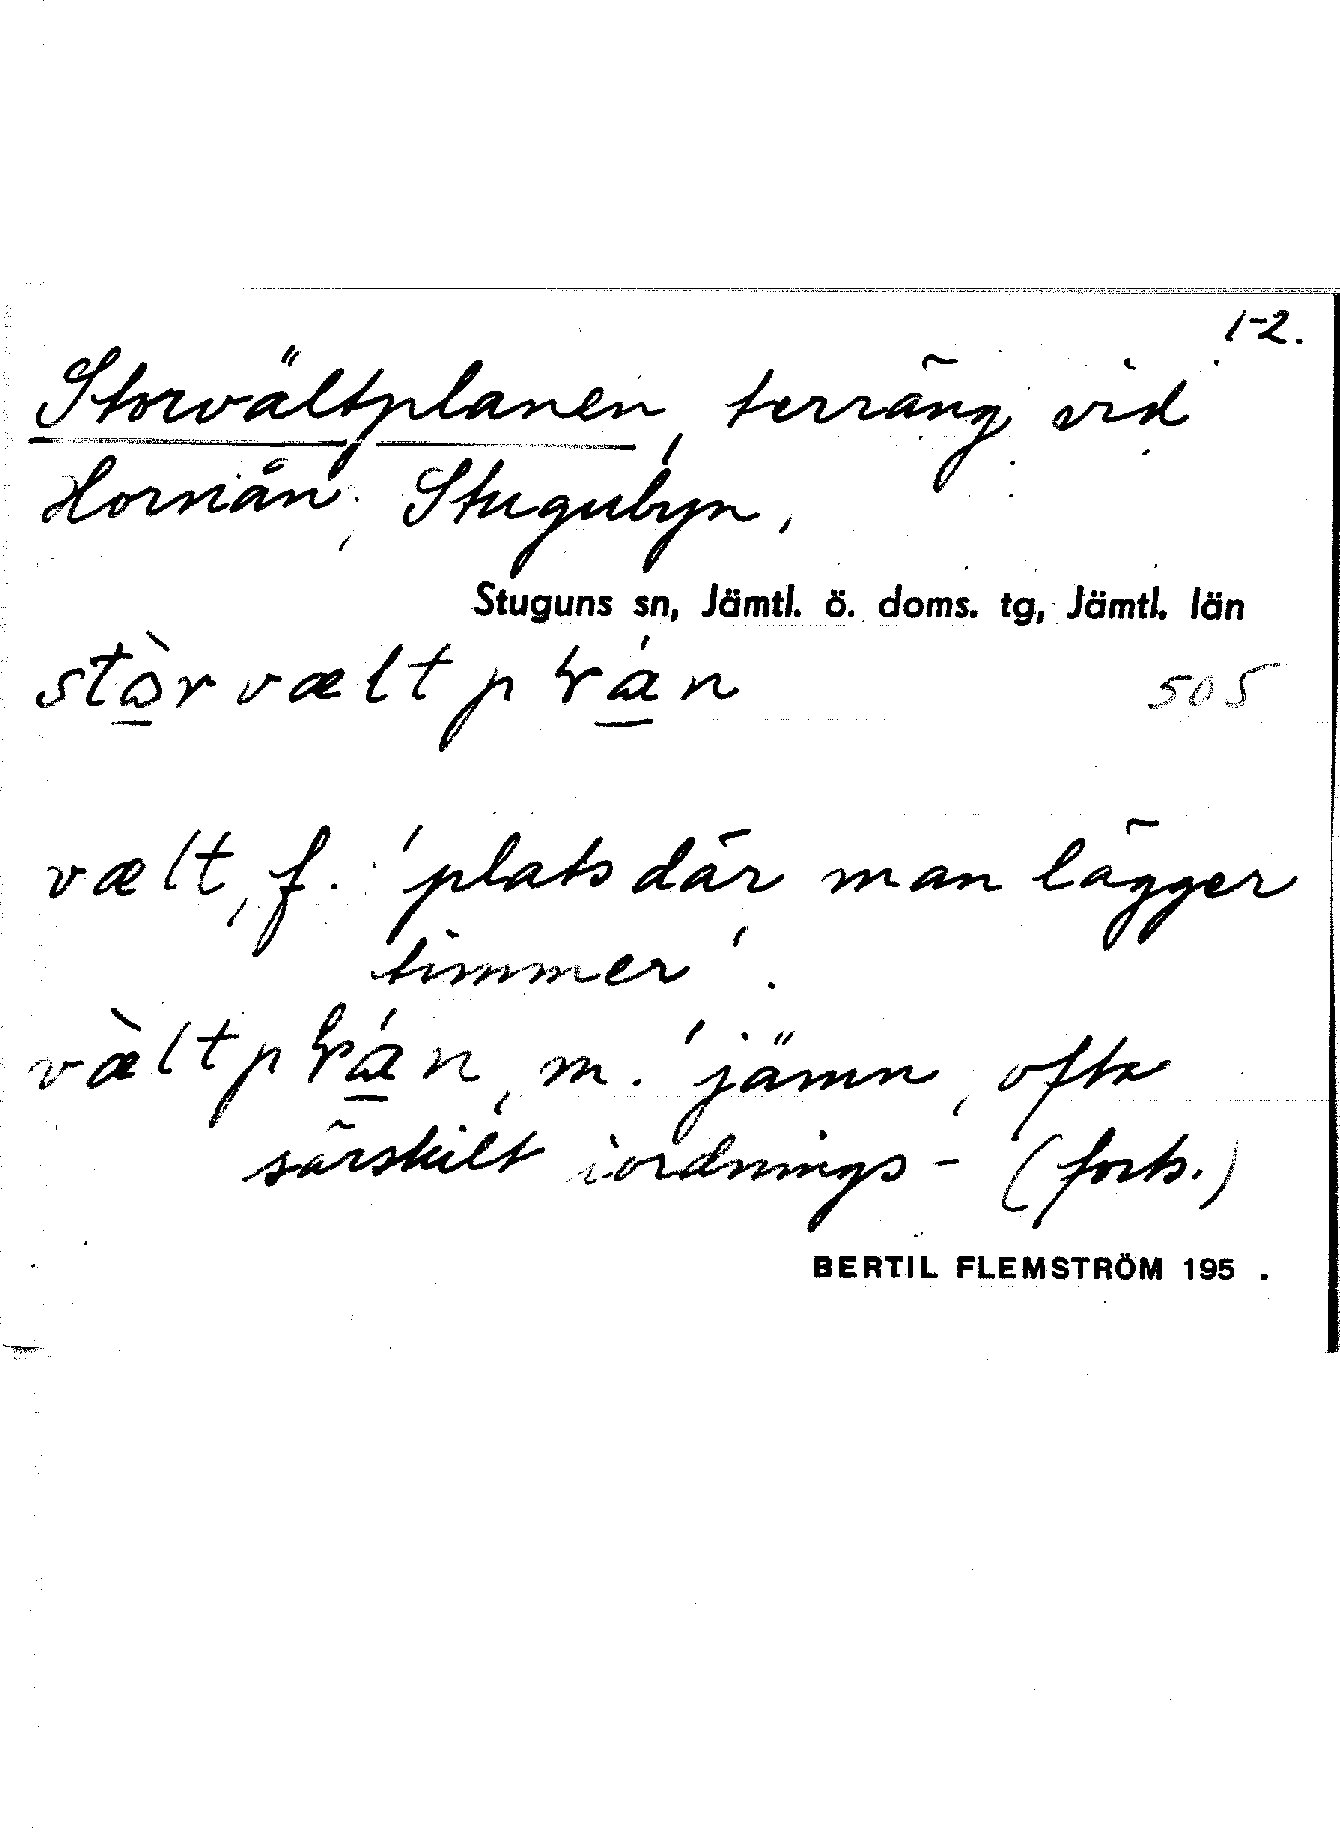 1-2.
Storvältplanen, terräng vid
Hornån, Stugubyn,
Stuguns sn, Jämtl. ö. doms. tg, Jämtl. län
505
vælt, f. 'plats där man lägger
timmer'.
m. 'jämn, ofta
särskilt iordnings- (forts.)
BERTIL FLEMSTRÖM 195 .